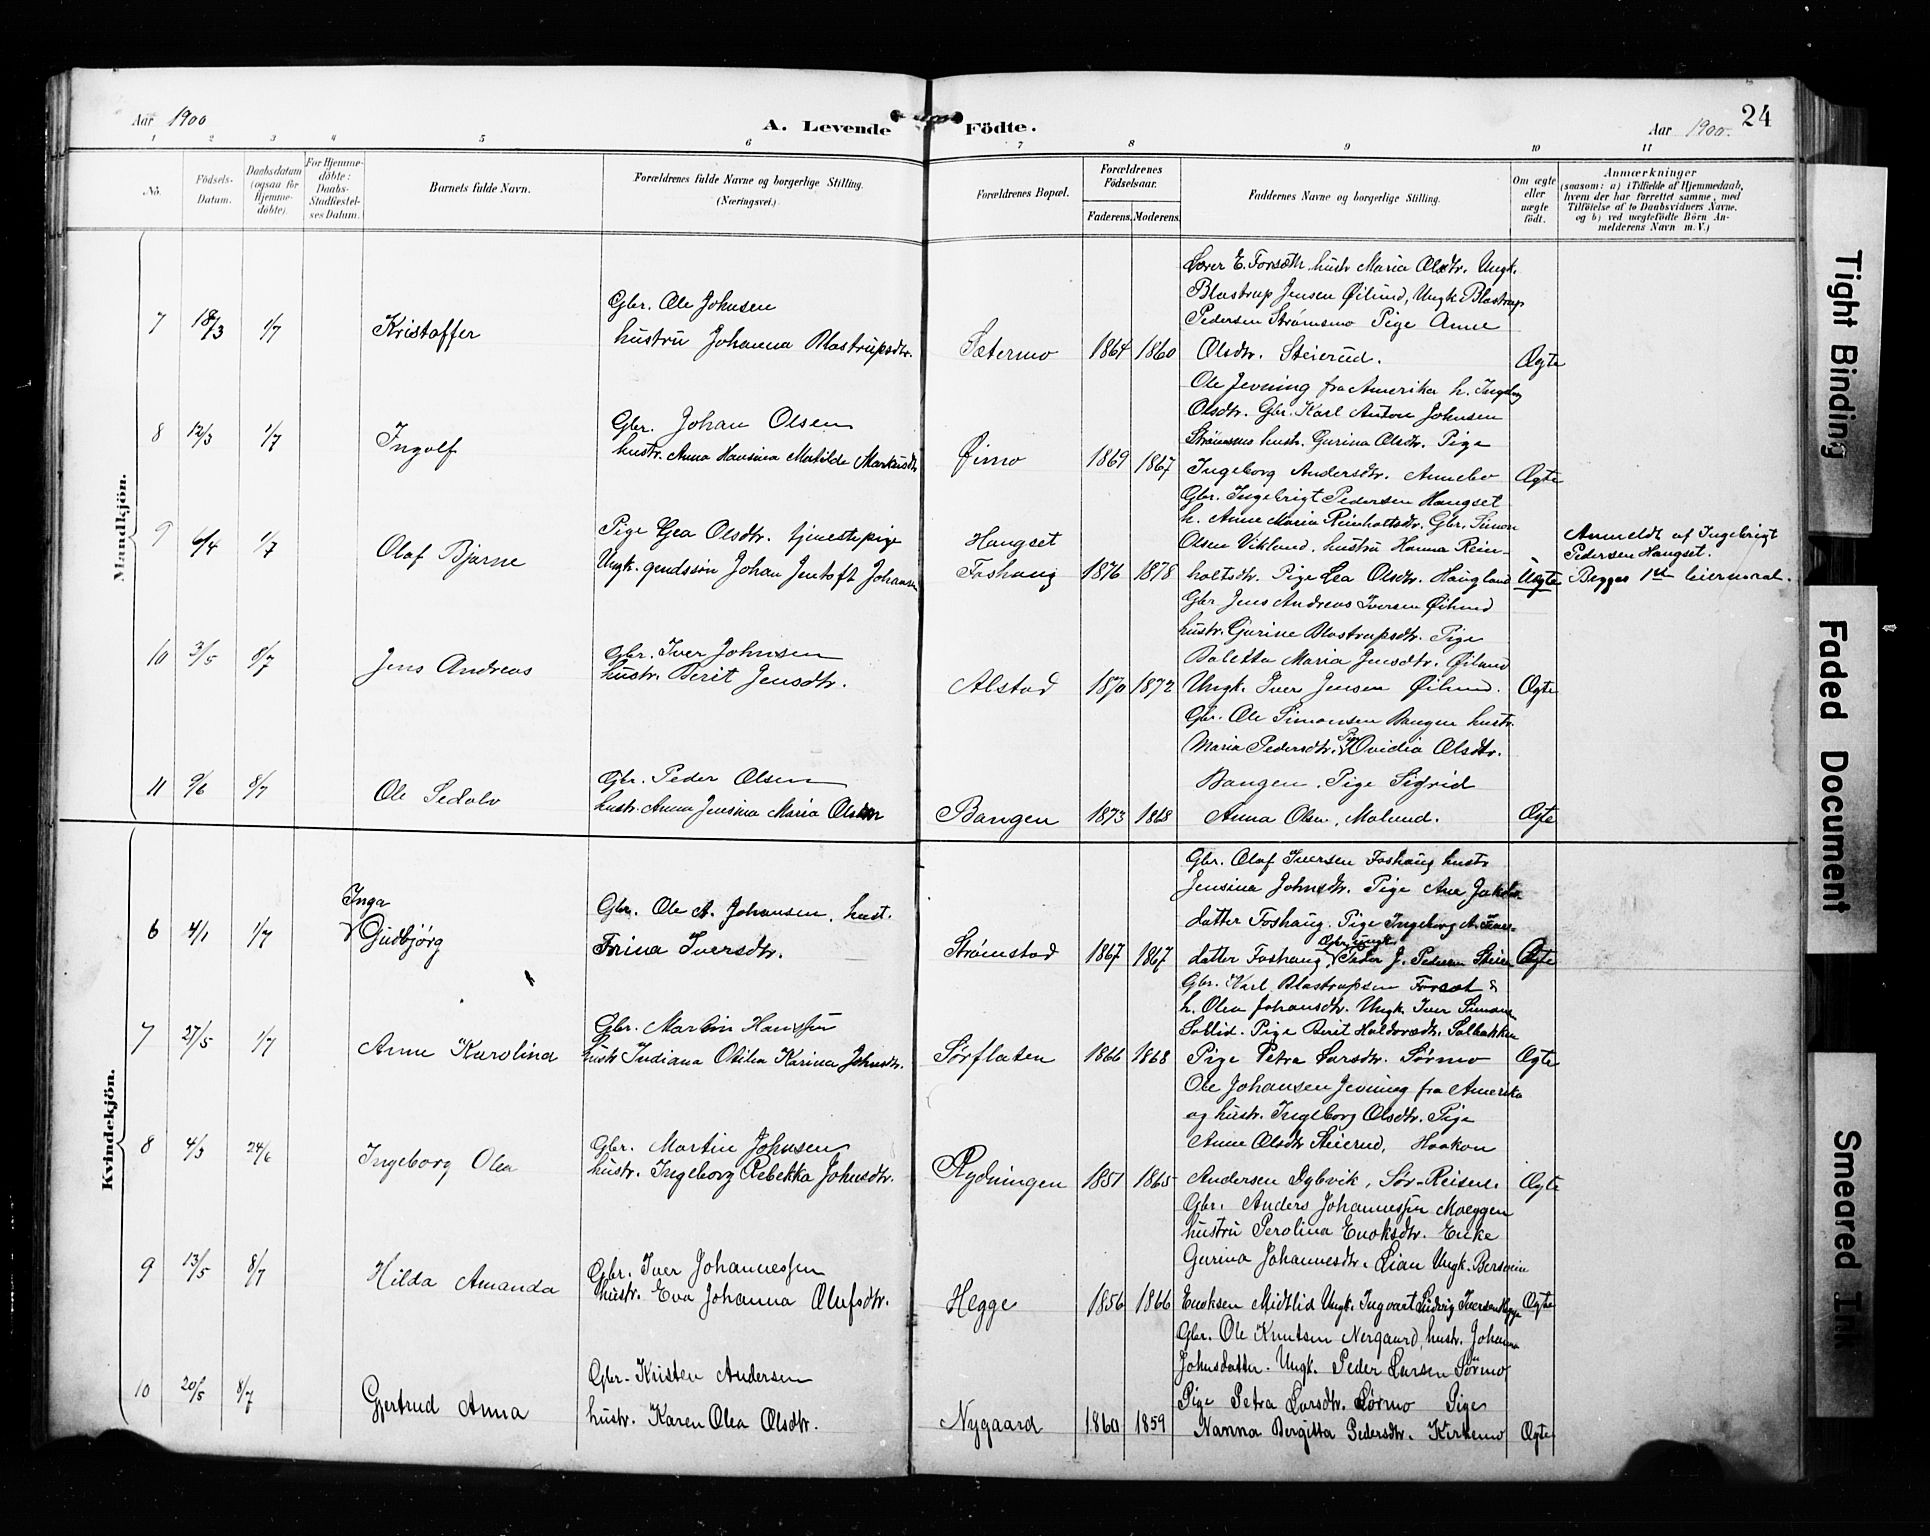 Aar 1900
A. Levende Födte.
Aar 1900. 24
1 2 3 4 5 6 7 8 9 10 11
No.
Födsels-
Datum.
Daabsdatum
(ogsaa for
Hjemme-
döbte).
For Hjemme-
döbte:
Daabs-
Stadfæstel-
ses Datum.
Barnets fulde Navn.
Forældrenes fulde Navne og borgerlige Stilling.
(Næringsvei.)
Forældrenes Bopæl.
Forældrenes
Födselsaar.
Faderens. Moderens.
Faddernes Navne og borgerlige Stilling.
Om ægte
eller
uægte
födt.
Anmærkninger
(saasom: a) i Tilfælde af Hjemmedaab,
hvem der har forrettet samme, med
Tilföielse af to Daabsvidners Navne.
og b) ved uægtefödte Börn An-
melderens Navn m. V.)
Mandkjön.
7 18/3 1/7 Kristoffer
Gbr. Ole Johnsen
hustru Johanna Blastrupsdtr.
Sætermo 1864 1860
Lærer E. Forsæth hustr Maria Olsdtr. Ungk.
Blastrup Jensen Øilund, Ungk. Blastrup
Pedersen Strømsmo Pige Anne
Olsdtr. Steierud.
Ægte
8 12/3 1/7 Ingolf
Gbr. Johan Olsen
hustr. Anna Hansina Matilde Markusdtr
Øimo 1869 1867
Ole Jevning fra Amerika h. Ingeborg
Olsdtr. Gbr. Karl Anton Johnsen
Strömsmo hustr. Gurina Olsdtr. Pige
Ingeborg Andersdtr. Annebo
Ægte
9 6/4 1/7 Olaf Bjarne
Pige Gea Olsdtr. tjenestepige
Ungk. gmdssön Johan Jentoft Johansen
Hangset
Foshaug 1876 1878
Gbr. Ingebrigt Pedersen Hangset
h. Anne Maria Reinholtsdtr. Gbr. Simon
Olsen Vikland, hustru Hanna Rein-
holtsdtr. Pige Lea Olsdtr. Haugland
Uægte
Anmeldt af Ingebrigt
Pedersen Hangset.
Begges 1ste leiermaal.
10 3/5 8/7 Jens Andreas
Gbr. Iver Johnsen
hustr. Berit Jensdtr.
Alstad 1870 1872
Gbr Jens Andreas Iversen Øilund
hustr. Gurine Blastrupsdtr. Pige
Baletta Maria Jensdtr. Øilund
Ungk. Iver Jensen Øilund.
Ægte
11 9/6 8/7 Ole Sedolv
Gbr. Peder Olsen
hustr. Anna Jensina Maria Olsdtr
Bangen 1873 1868
Gbr. Ole Simonsen Bangen hustr.
Maria Pedersdtr. Pige Ovidia Olsdtr.
Bangen. Pige Sigrid
Anna Olsen, Molund.
Ægte
Kvindekjön.
6 4/1 1/7 Inga
Gudbjörg
Gbr. Ole A. Johansen, hust.
Trina Iversdtr.
Strømstad 1867 1867
Gbr. Olaf Iversen Foshaug hustr
Jensina Johnsdtr. Pige Ane Jakobs
datter Foshaug. Pige Ingeborg A. Iver-
datter Foshaug, Ungk. Peder J. Pedersen Steien
Ægte
7 27/5 1/7 Anne Karolina
Gbr. Martin Hanssen
hustr Indiana Otilia Karina Johnsdtr.
Sörfloten 1866 1868
Gbr. Karl Blastrupsen Forsæt &
h. Olea Johansdtr. Ungk. Iver Simons
Sollid. Pige Berit Haldorsdtr. Solbakken
Pige Petra Larsdtr. Sörmo
Ægte
8 4/3 24/6 Ingeborg Olea
Gbr. Martin Johnsen
hustr. Ingeborg Rebekka Johnsdtr.
Rydningen 1851 1865
Ole Johansen Jevning fra Amerika
og hustr. Ingeborg Olsdtr. Pige
Anne Olsdtr Steierud, Haakon
Andersen Dybvik, Sör-Reisen.
Ægte
9 13/5 8/7 Hilda Amanda
Gbr. Iver Johannessen
hustr. Eva Johanna Olufsdtr.
Hegge 1856 1866
Gbr. Anders Johannessen Moeggen
hustru Perolina Enoksdtr. Enke
Gurina Johannesdtr. Lian Ungk. Bersvein
Enoksen Midtlid Ungk. Ingvart Ludvig Iversen Hegge
Ægte
10 20/5 8/7 Gjertrud Anna
Gbr. Kristen Andersen
hustr. Karen Olea Olsdtr.
Nygaard 1860 1859
Gbr. Ole Knutsen Nergaard, hustr. Johanna
Johnsdatter. Ungk. Peder Larsen Sörmo
Pige Petra Larsdtr. Sörmo Pige
Nanna Bergitta Pedersdtr. Kirkemo
Ægte
Tight Binding
Faded Document
Smeared Ink